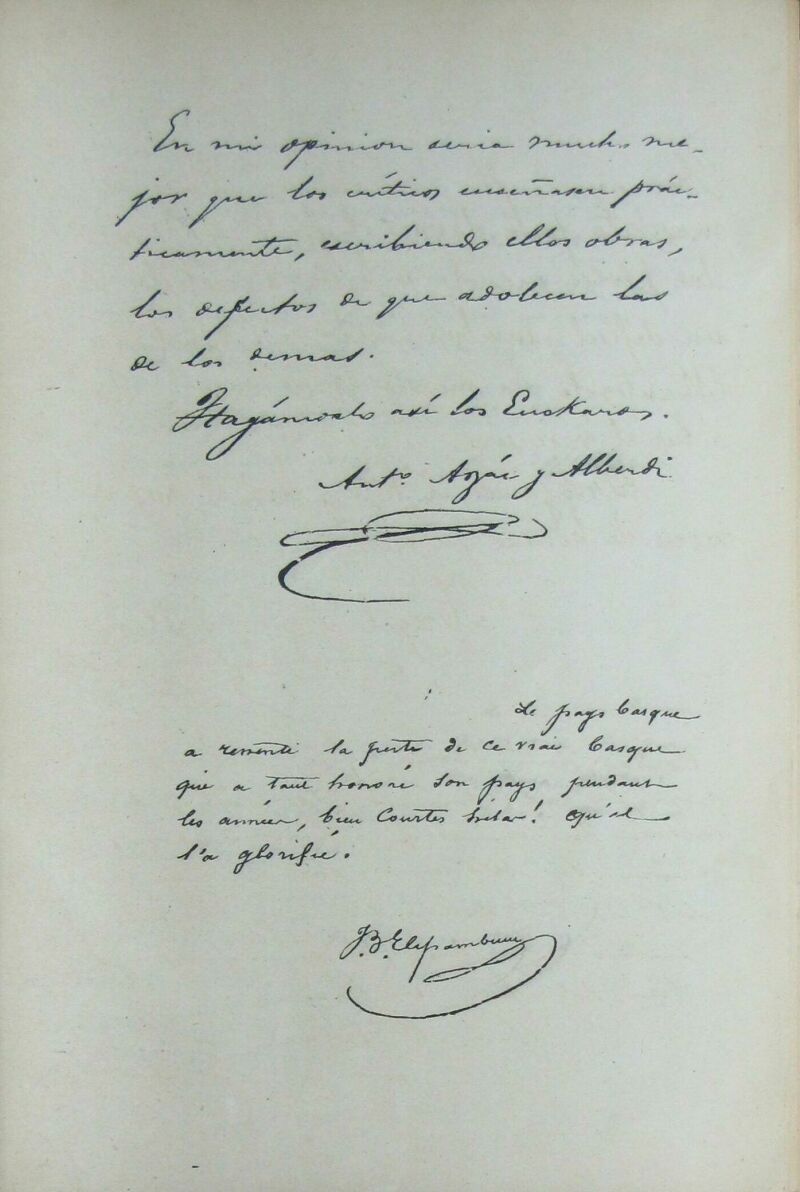 En mi opinion seria mucho me-
jor que los críticos enseñasen prác-
ticamente, escribiendo ellos obras,
los defectos de que adolecen las
de los demas.
Hagámoslo así los Euskaros.
Ant.º Arzác y Alberdi
Le pays basque
a ressenti la perte de ce vrai basque
qui a tant honoré son pays pendant
les années, bien courtes hélas! qu'il
l'a glorifié.
J.B. Elissamburu